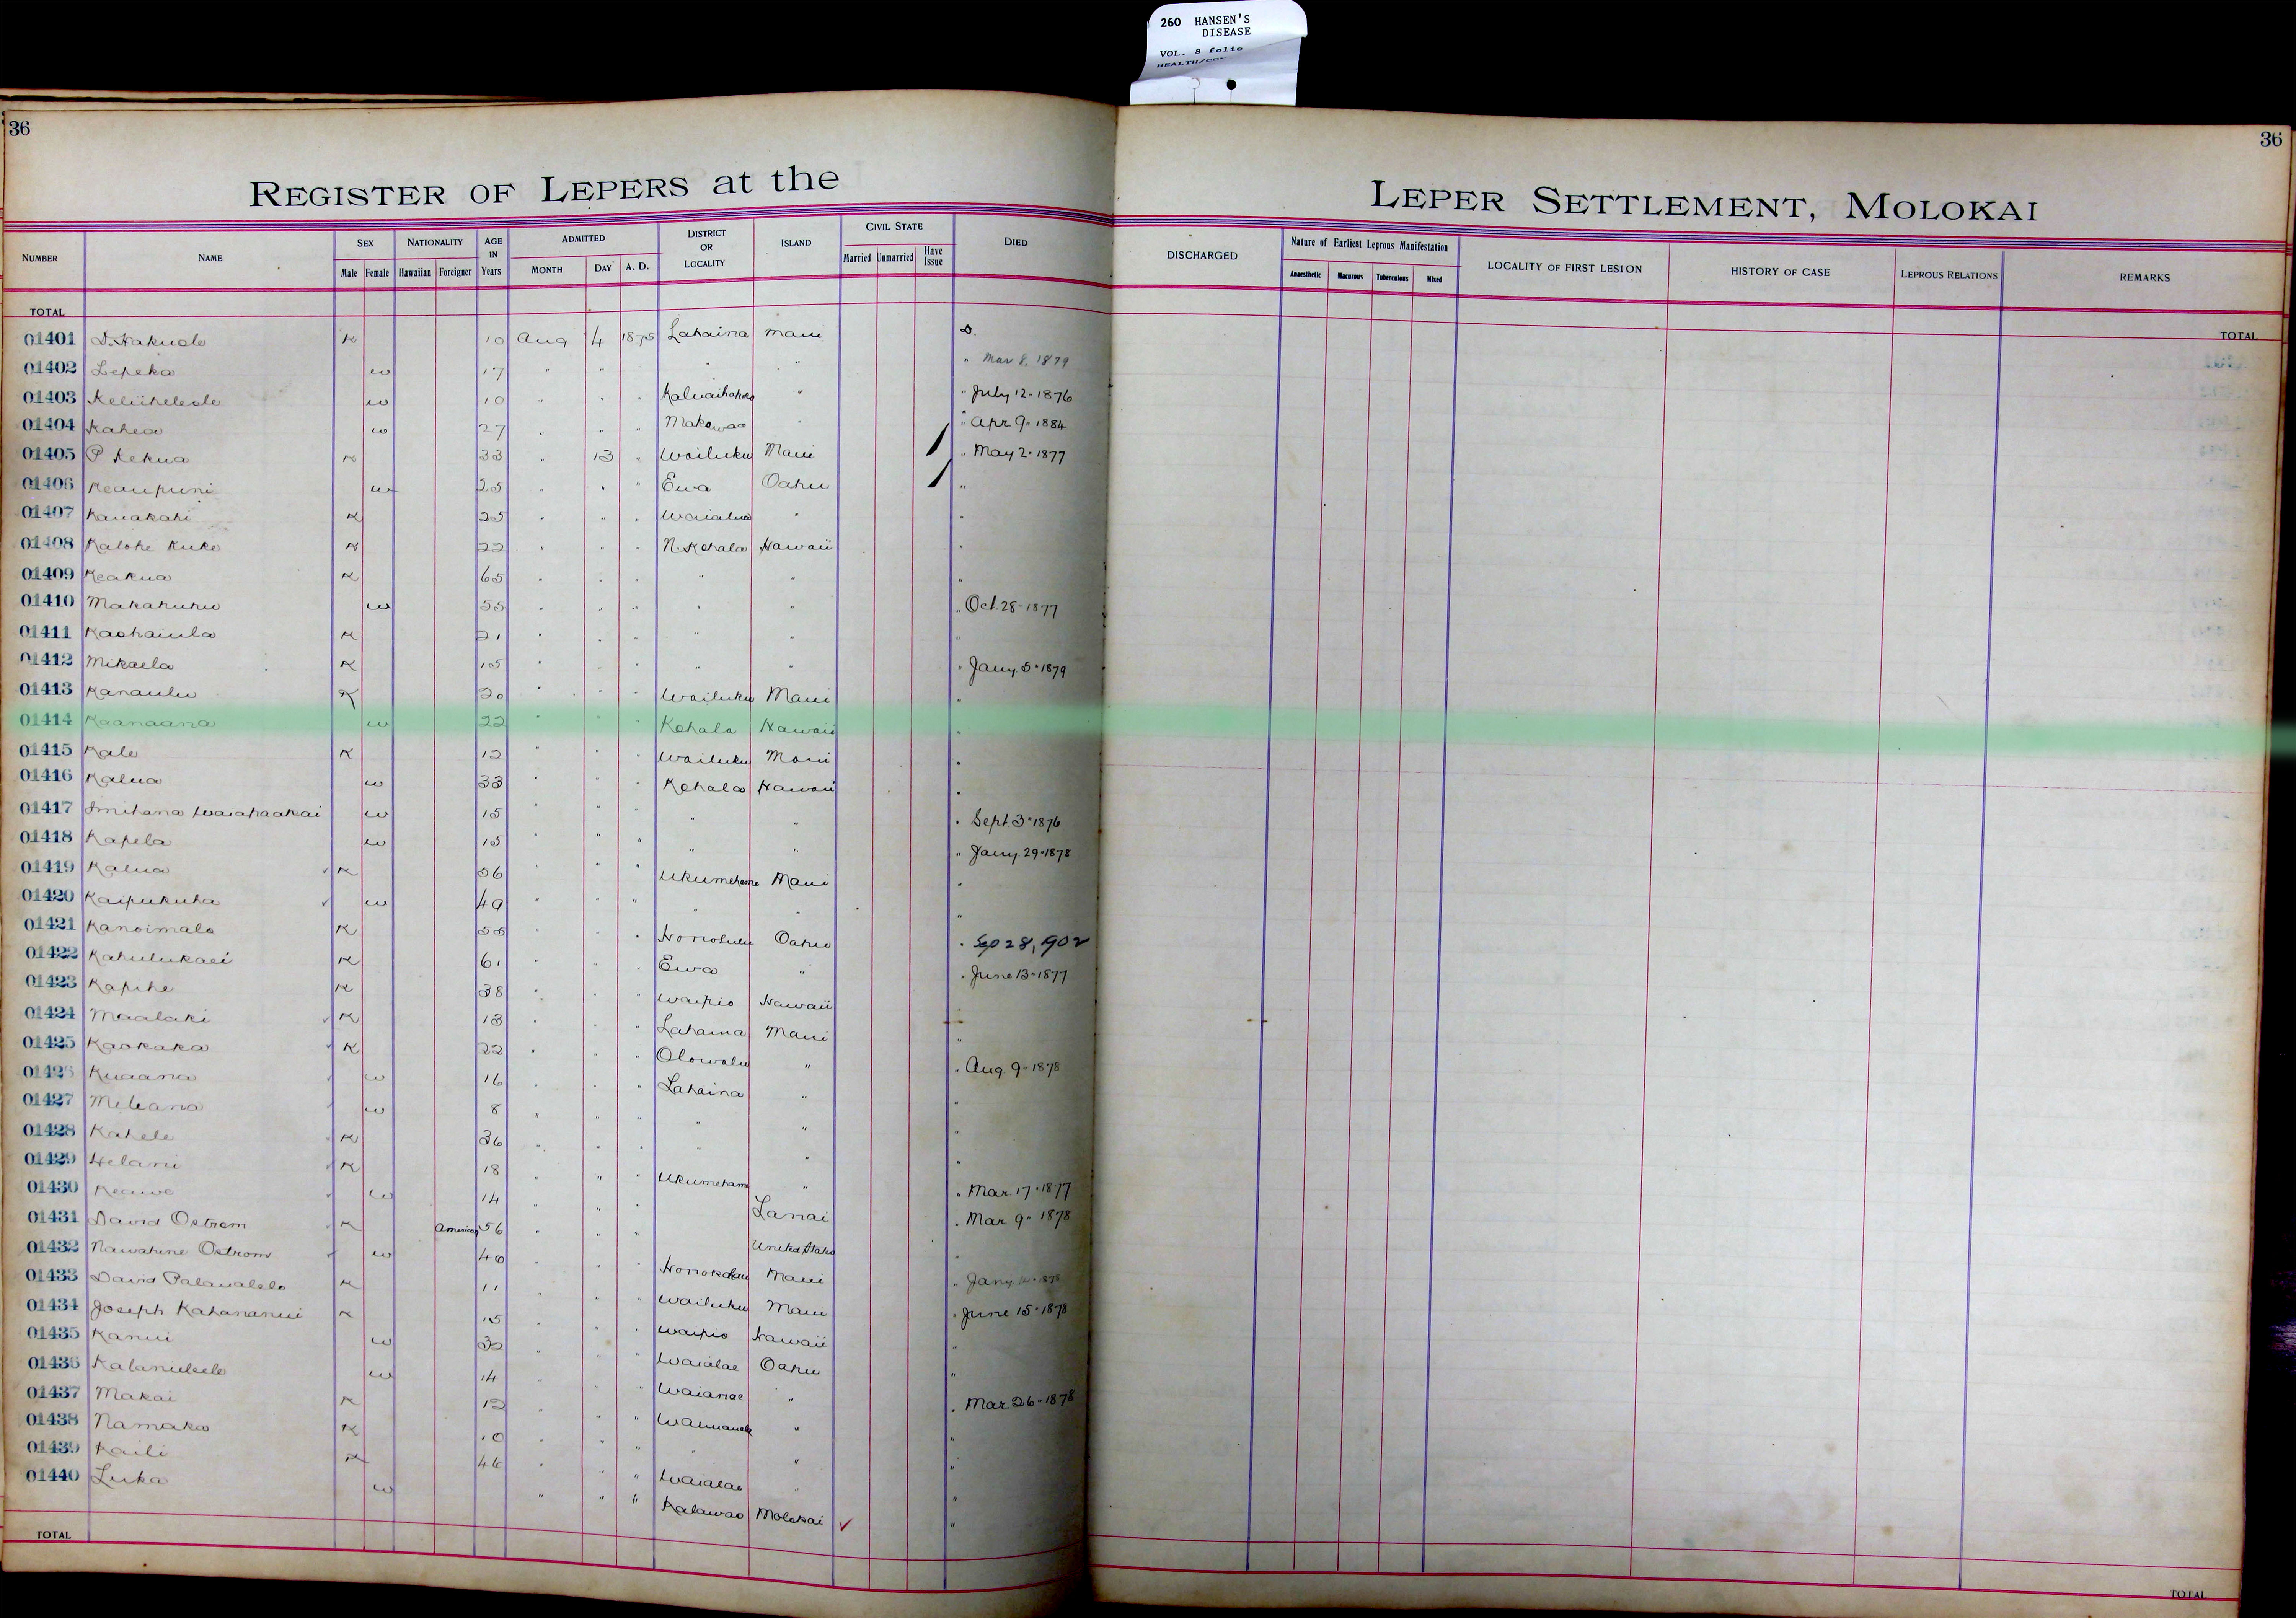 260 HANSEN'S
DISEASE
VOL. 8 folio
36
36
REGISTER OF LEPERS at the
LEPER SETTLEMENT, MOLOKAI
NUMBER NAME SEX Male Female NATIONALITY Hawaiian Foreigner AGE IN Years ADMITTED MONTH DAY A. D. DISTRICT OR LOCALITY ISLAND CIVIL STATE Married Unmarried Have Issue DIED DISCHARGED Nature of Earliest Leprous Manifestation Anaesthetic Macurous Tuberculous Mixed LOCALITY OF FIRST LESION HISTORY OF CASE LEPROUS RELATIONS REMARKS
TOTAL TOTAL
01401 D. Hakuole K 10 Aug 4 1875 Lahaina Maui D.
01402 Lepeka w 17 " " " " " " Mar 8. 1879
01403 w 10 " " " " " July 12-1876
01404 Kahea w 27 " " " Makawao " " Apr 9-1884
01405 P Kekua K 33 " 13 " Wailuku Maui " May 2-1877
01406 Keaupuni w 25 " " " Ewa Oahu "
01407 Kauakahi K 25 " " " Waialua " "
01408 Kalohe Kuke K 22 " " " N. Kohala Hawaii "
01409 Keakua K 65 " " " " " "
01410 Makahuhu w 55 " " " " " " Oct. 28-1877
01411 Kaohaiula K 21 " " " " " "
01412 Mikaela K 15 " " " " " " Jany 5-1879
01413 Kanaulu K 20 " " " Wailuku Maui "
01414 Kaanaana w 22 " " " Kohala Hawaii "
01415 Kale K 12 " " " Wailuku Maui "
01416 Kalua w 33 " " " Kohala Hawaii "
01417 w 15 " " " " " " Sept. 3-1876
01418 Kapela w 15 " " " " " " Jany. 29-1878
01419 Kalua K 56 " " " Ukumehame Maui "
01420 Kaipukuha w 49 " " " " " "
01421 Kanoimalo K " " " Honolulu Oahu " Sep 28, 1902
01422 K 61 " " " Ewa " " June 13-1877
01423 Kapihe K 38 " " " Waipio Hawaii
01424 Maalaki K 13 " " " Lahaina Maui "
01425 Kaokaka K 22 " " " Olowalu " " Aug. 9-1878
01426 Kuaana w 16 " " " Lahaina " "
01427 Meleana w 8 " " " " " "
01428 Kahele K 36 " " " " " "
01429 Helani K 18 " " " Ukumehame " " Mar. 17-1877
01430 Keawe w 14 " " " Lanai " Mar. 9-1878
01431 David Ostrom K American 56 " " " United States "
01432 Nawahine Ostrom w " " " Honokohau Maui " Jany
01433 David Palaualelo K 11 " " " Wailuku Maui " June 15-1878
01434 Joseph Kahananui K 15 " " " Waipio Hawaii "
01435 Kanui w 32 " " " Waialae Oahu "
01436 w 14 " " " Waianae " " Mar. 26-1878
01437 Makai K 12 " " " " "
01438 Namaka K 10 " " " " " "
01439 Kaili K 46 " " " Waialae " "
01440 Luka w " " " Kalawao Molokai "
TOTAL TOTAL